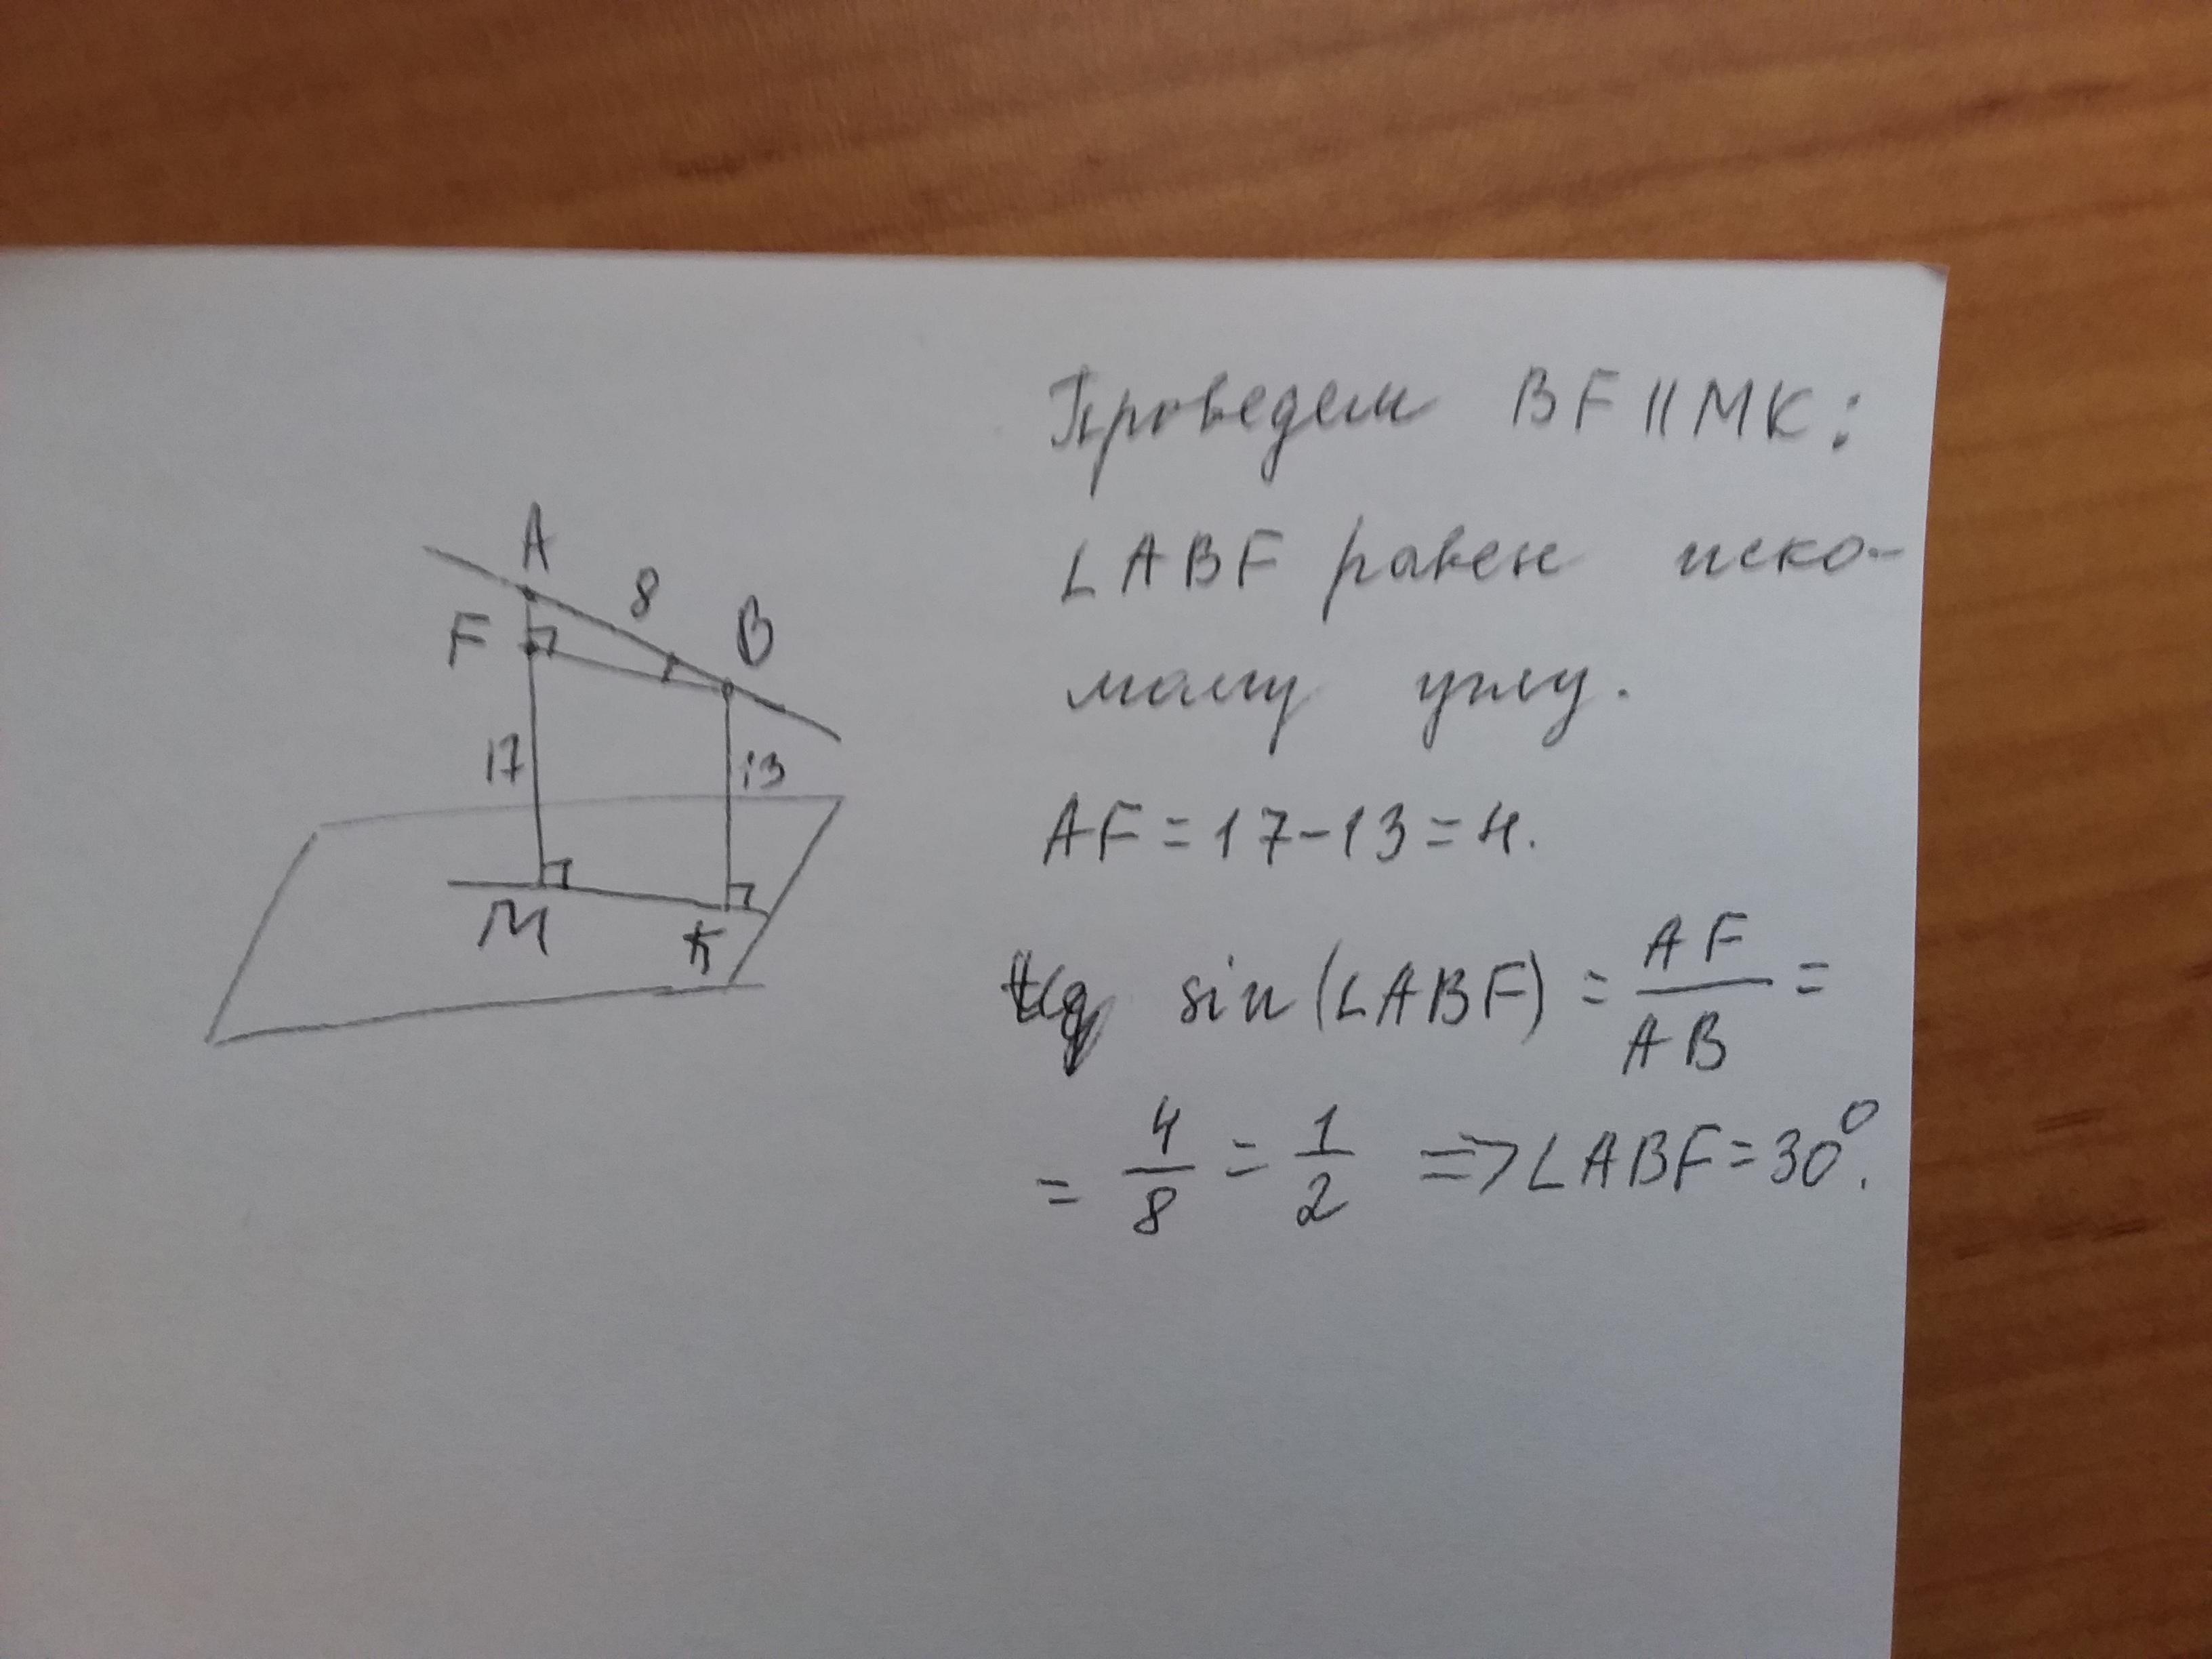 A
8
F
B
17
13
M
K
Проведем BF || MK:
∠ABF равен иско-
мому углу.
AF = 17 - 13 = 4.
sin(∠ABF) = AF/AB =
= 4/8 = 1/2 => ∠ABF = 30°.